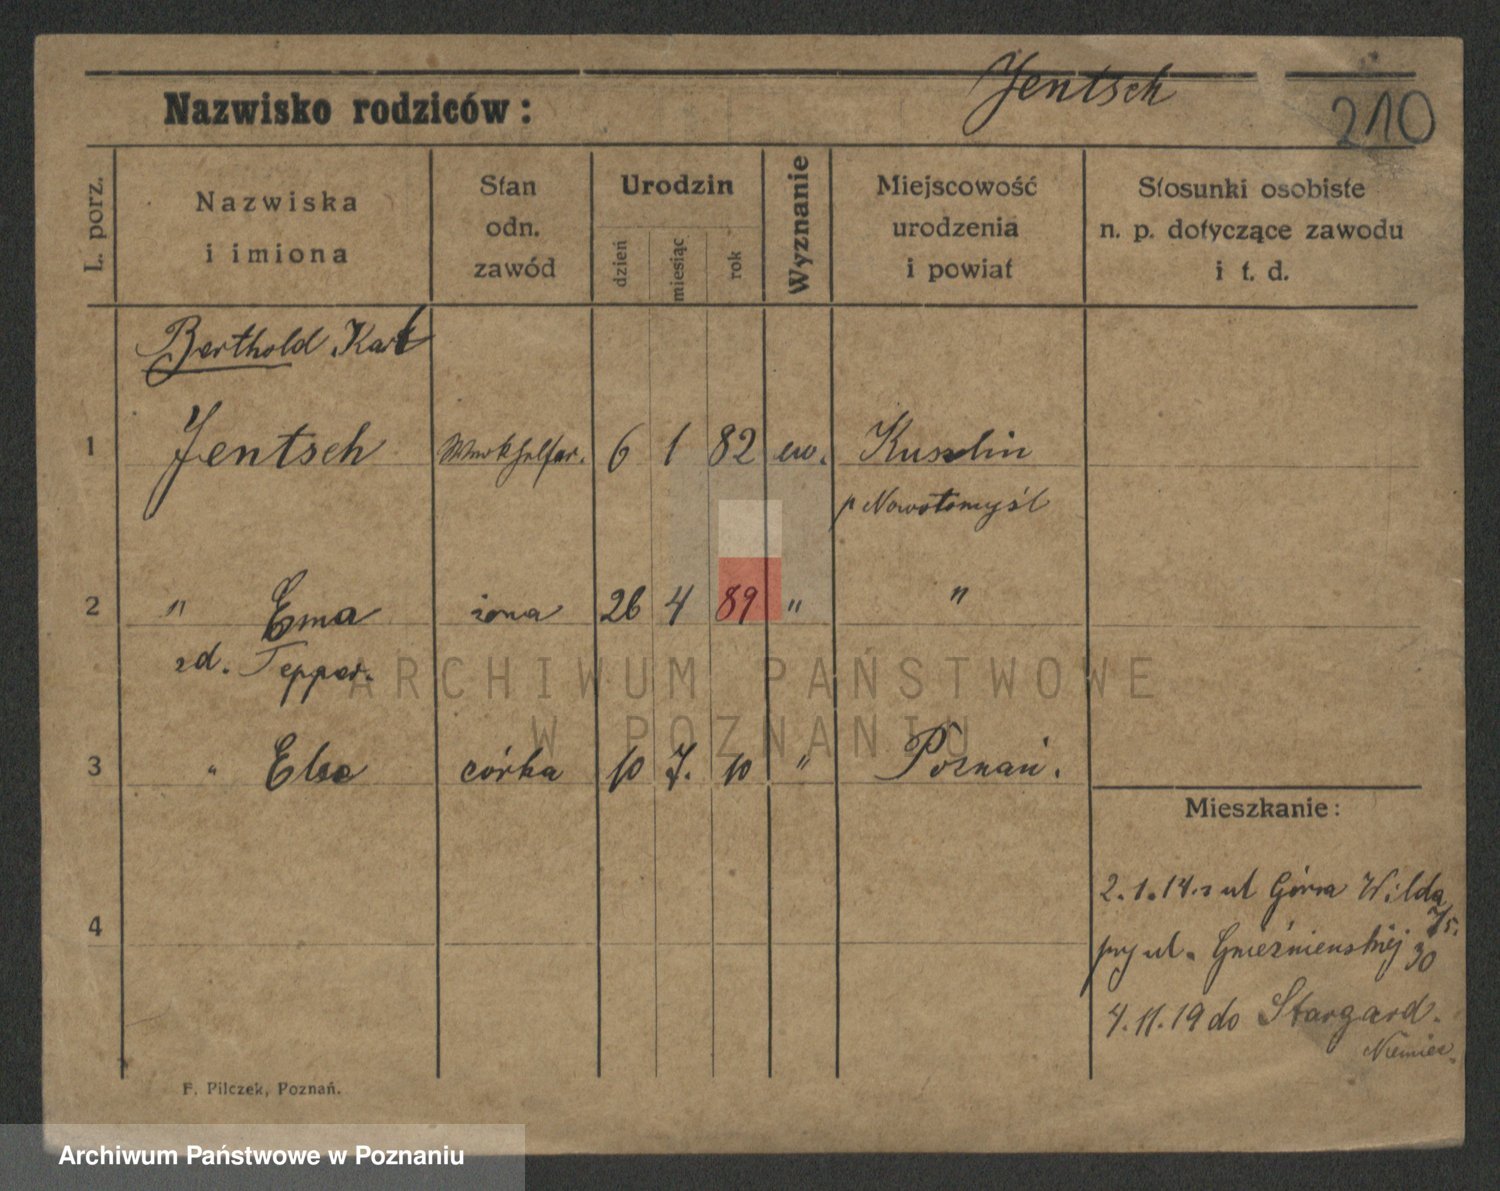 Jentsch
210
Nazwisko rodziców:
L. porz.
Nazwiska
i imiona
Stan
odn.
zawód
Urodzin
dzień
miesiąc
rok
Wyznanie
Miejscowość
urodzenia
i powiat
Stosunki osobiste
n. p. dotyczące zawodu
i t. d.
Berthold Karl
1 Jentsch Werkhelfer. 6 1 82 ew. Kuszlin
p Nowotomyśl
2 " Ema żona 26 4 89 " "
zd. Tepper.
ARCHIWUM PAŃSTWOWE
W POZNANIU
3 " Elsa córka 10 7. 10 " Poznań.
Mieszkanie:
2.1.14. z ul Górna Wilda
75.
4
przy ul. Gnieźnieńskiej 30
4.11.19 do Stargard.
Niemiec.
F. Pilczek, Poznań.
Archiwum Państwowe w Poznaniu